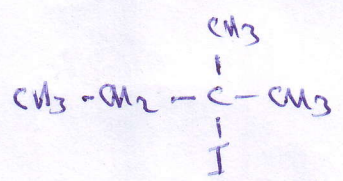 CH3
CH3 - CH2 - C - CH3
I